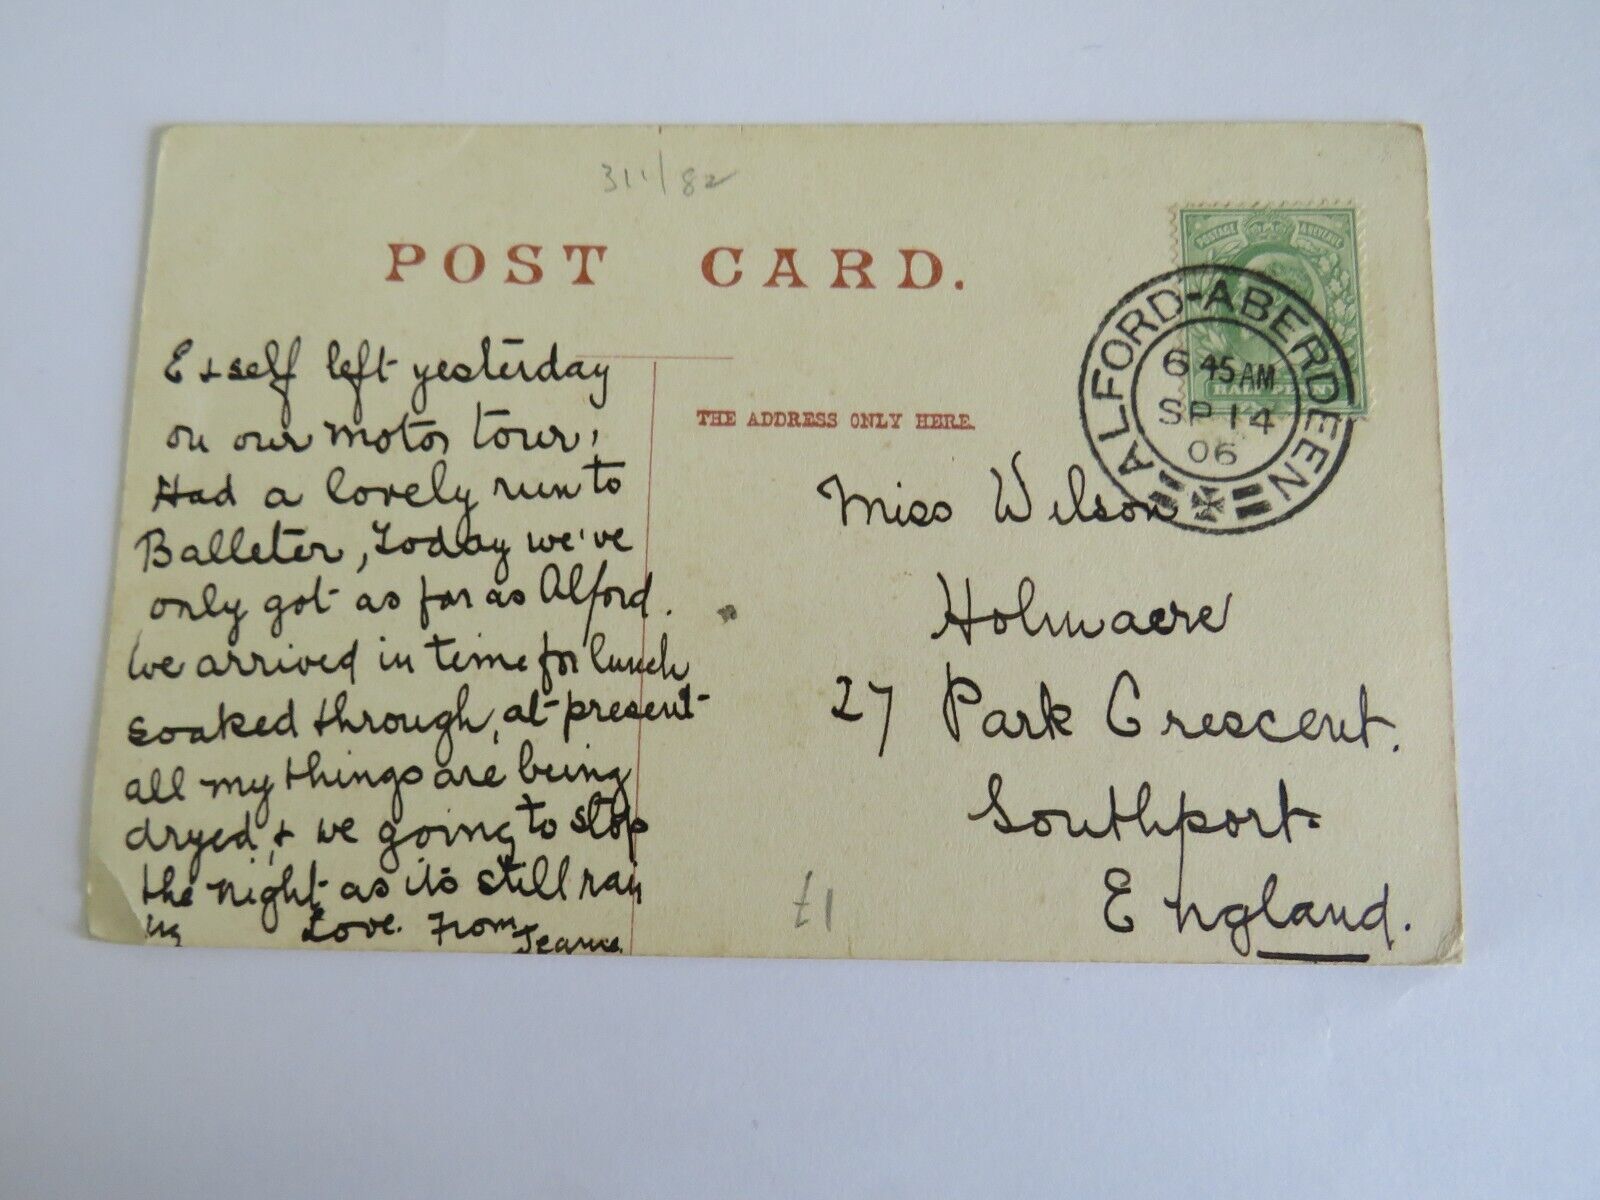 311/82
POST CARD.
POSTAGE & REVENUE
HALFPENNY
ALFORD-ABERDEEN
6 45 AM
SP 14
06
THE ADDRESS ONLY HERE.
E & self left yesterday
on our motor tour,
Had a lovely run to
Balleter, Today we've
only got as far as Alford.
We arrived in time for lunch
soaked through, at present
all my things are being
dryed, & we going to stop
the night as its still rain
ing Love. From Jeanne
Miss Wilson
Holmacre
27 Park Crescent.
Southport.
England.
£1